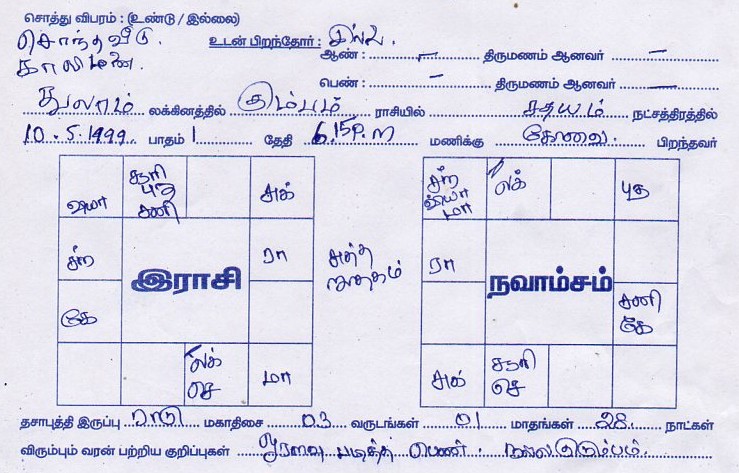 சொத்து விபரம் : (உண்டு / இல்லை)
சொந்த வீடு உடன் பிறந்தோர் : இல்லை.
காலிமனை. ஆண் : — திருமணம் ஆனவர் —
பெண் : — திருமணம் ஆனவர் —
துலாம் லக்கினத்தில் கும்பம் ராசியில் சதயம் நட்சத்திரத்தில்
10.5.1999 பாதம் 1 தேதி 6.15P.m மணிக்கு கோவை. பிறந்தவர்
சூரி சந் லக்
வியா புத சுக் வியா புத
சனி மா
சந் ரா சுத்த ரா
இராசி ஜாதகம் நவாம்சம்
கே சனி
கே
லக் மா சுக் சூரி
செ செ
தசாபுத்தி இருப்பு ராகு மகாதிசை 03 வருடங்கள் 01 மாதங்கள் 28 நாட்கள்
விரும்பும் வரன் பற்றிய குறிப்புகள் ஓரளவு படித்த பெண். நல்ல குடும்பம்.